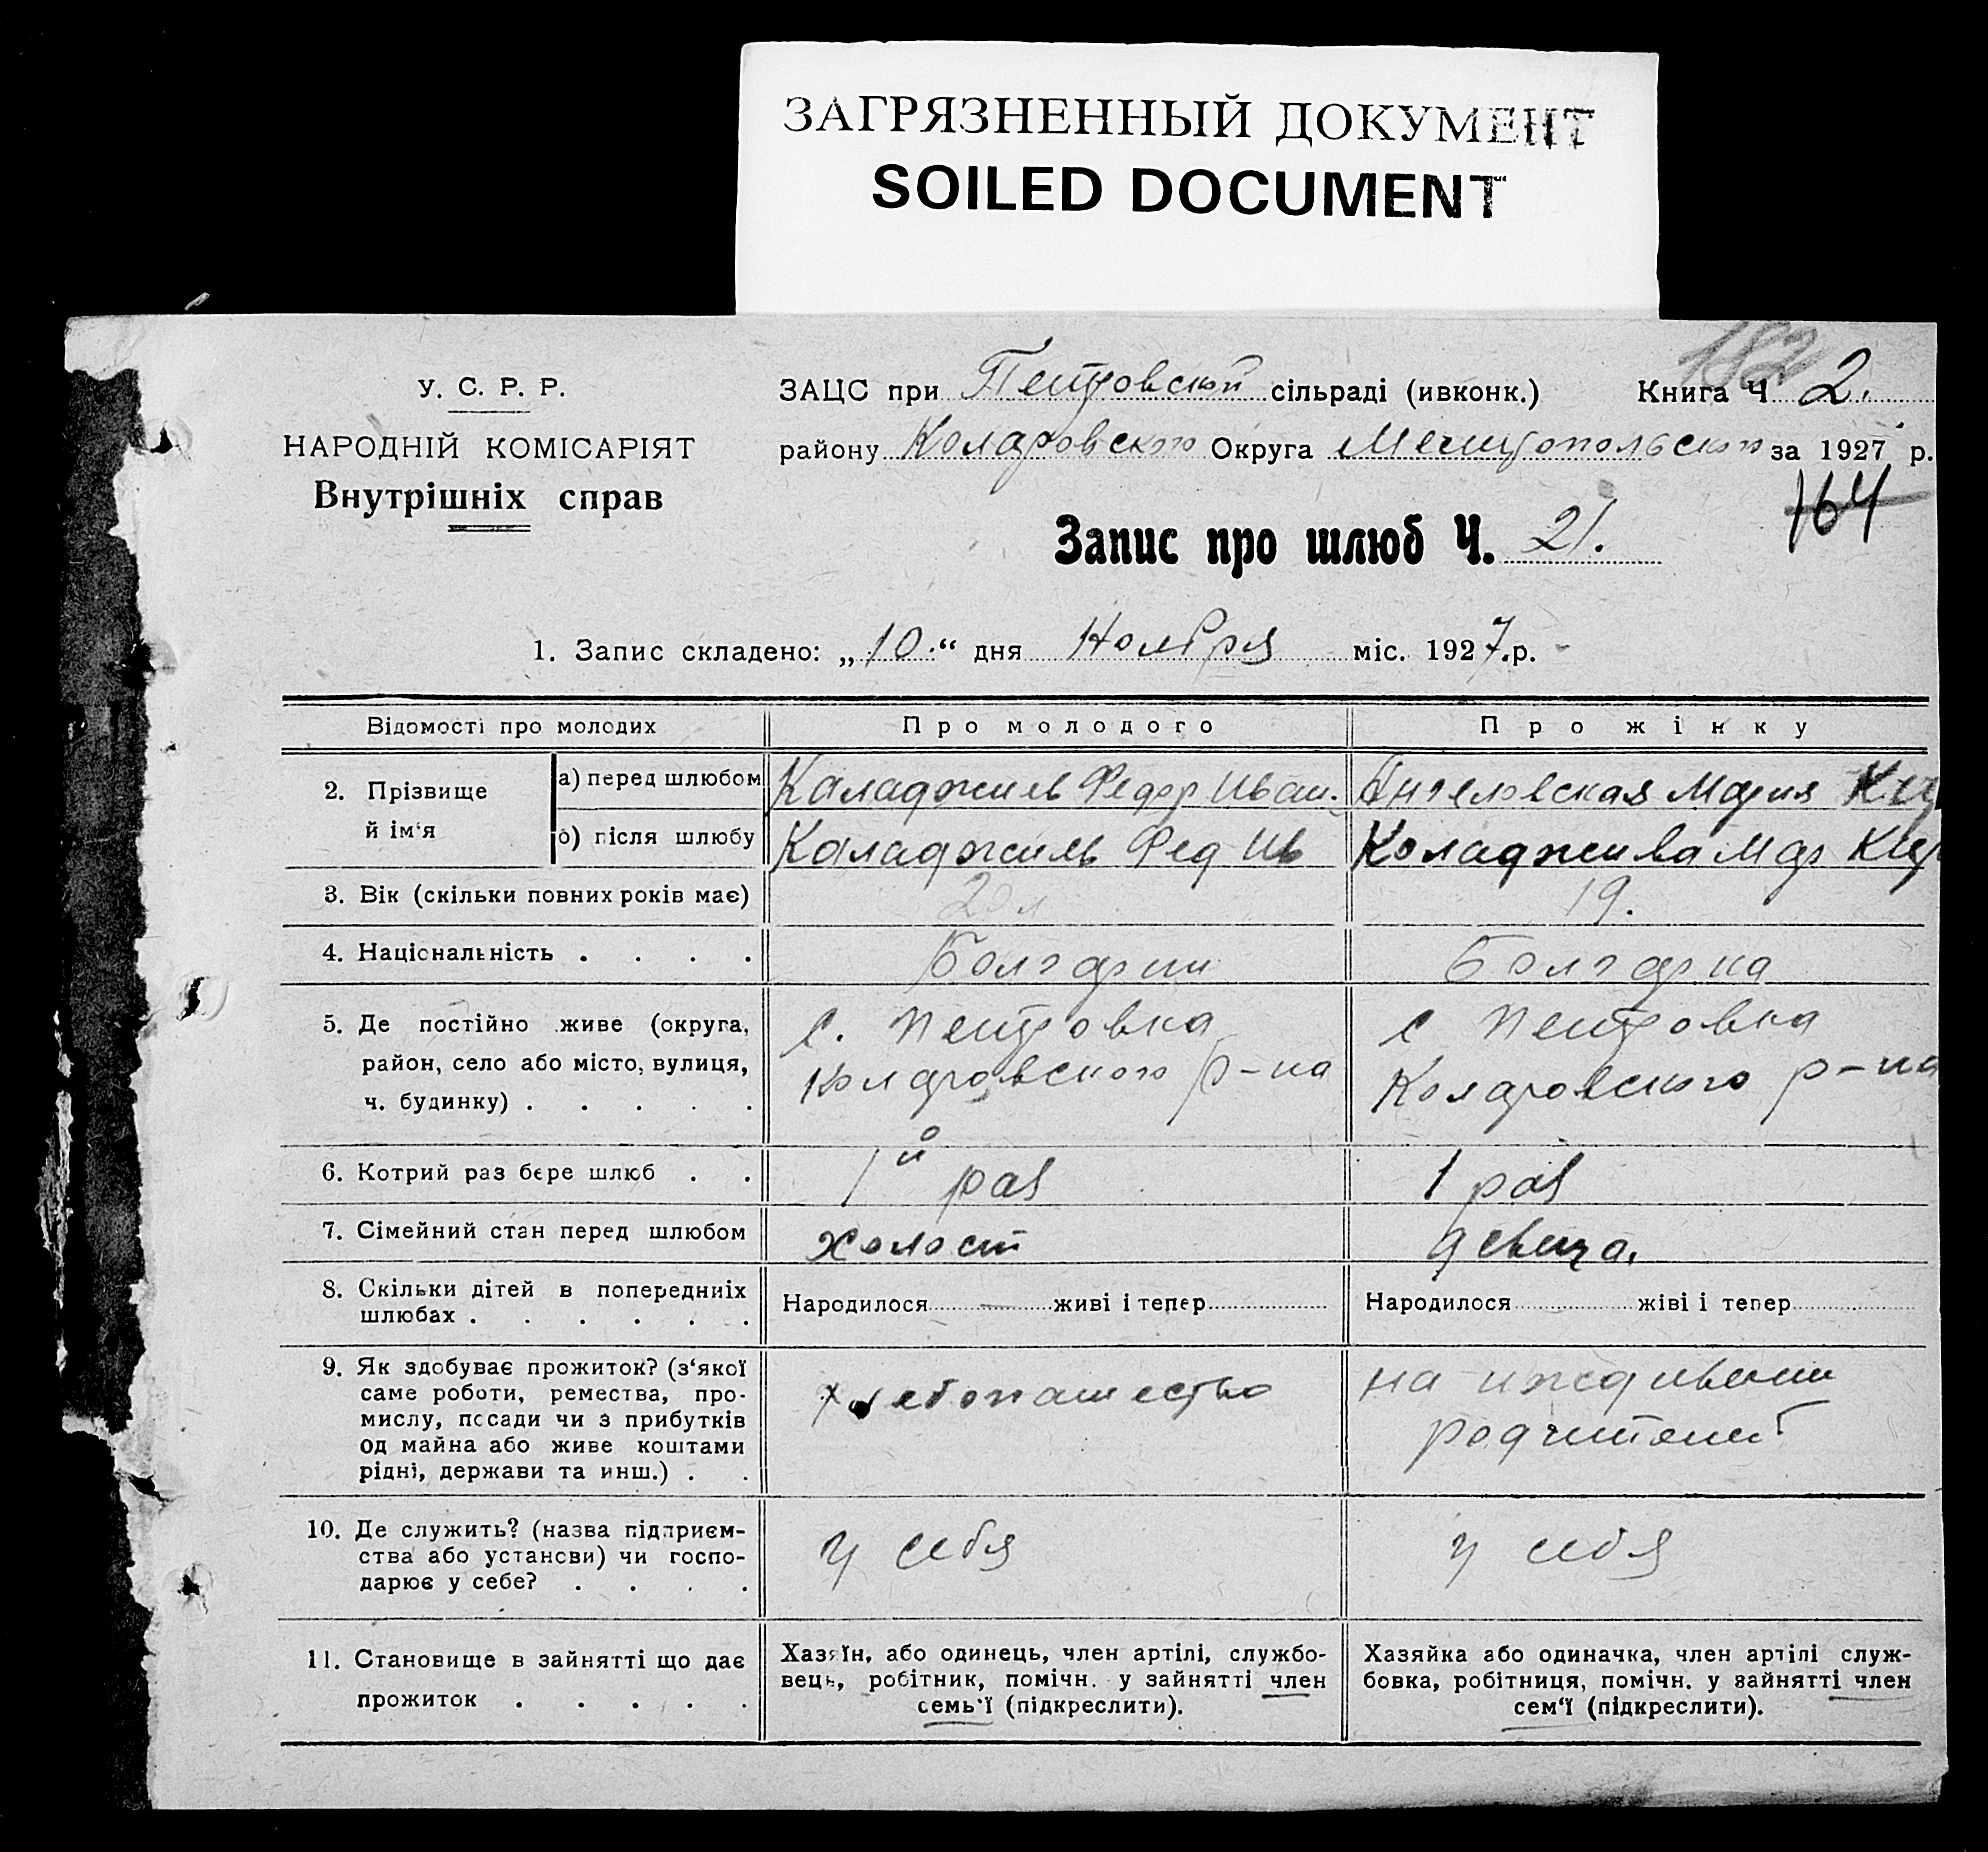 ЗАГРЯЗНЕННЫЙ ДОКУМЕНТ
SOILED DOCUMENT
182
У. С. Р. Р.
НАРОДНІЙ КОМІСАРІЯТ
Внутрішніх справ
ЗАЦС при Петровской сільраді (ивконк.) Книга Ч 2.
району Коларовского Округа за 1927 р.
164
Запис про шлюб Ч. 21.
1. Запис складено: „10.“ дня Ноября міс. 1927.р.
Відомості про молодих Про молодого Про жінку
2. Прізвище й ім'я
а) перед шлюбом Каладжиев Федор Иван. Ангеловская Мария Кир
б) після шлюбу Каладжиев Фед Ив Коладжиева Мар Кир
3. Вік (скільки повних років має) 20 л 19.
4. Національність . . . . Болгарин Болгарка
5. Де постійно живе (округа, с. Петровка с Петровка
район, село або місто, вулиця, Коларовского р-на Коларовского р-на
ч. будинку) . . . . .
6. Котрий раз бере шлюб . . 1й раз 1 раз
7. Сімейний стан перед шлюбом холост девица.
8. Скільки дітей в попередниіх
шлюбах . . . . . . Народилося — живі і тепер Народилося живі і тепер
9. Як здобуває прожиток? (з‘якої
саме роботи, ремества, про-
мислу, посади чи з прибутків
од майна або живе коштами
рідні, держави та инш.) . .
хлебопашество
на иждивении
родителей
10. Де служить? (назва підприєм-
ства або установи) чи госпо-
дарює у себе? . . . .
у себя
у себя
11. Становище в зайнятті що дає
прожиток . . . . .
Хазяїн, або одинець, член артілі, службо-
вець, робітник, помічн. у зайнятті член
семь‘ї (підкреслити).
Хазяйка або одиначка, член артілі служ-
бовка, робітниця, помічн. у зайнятті член
сем‘ї (підкреслити).